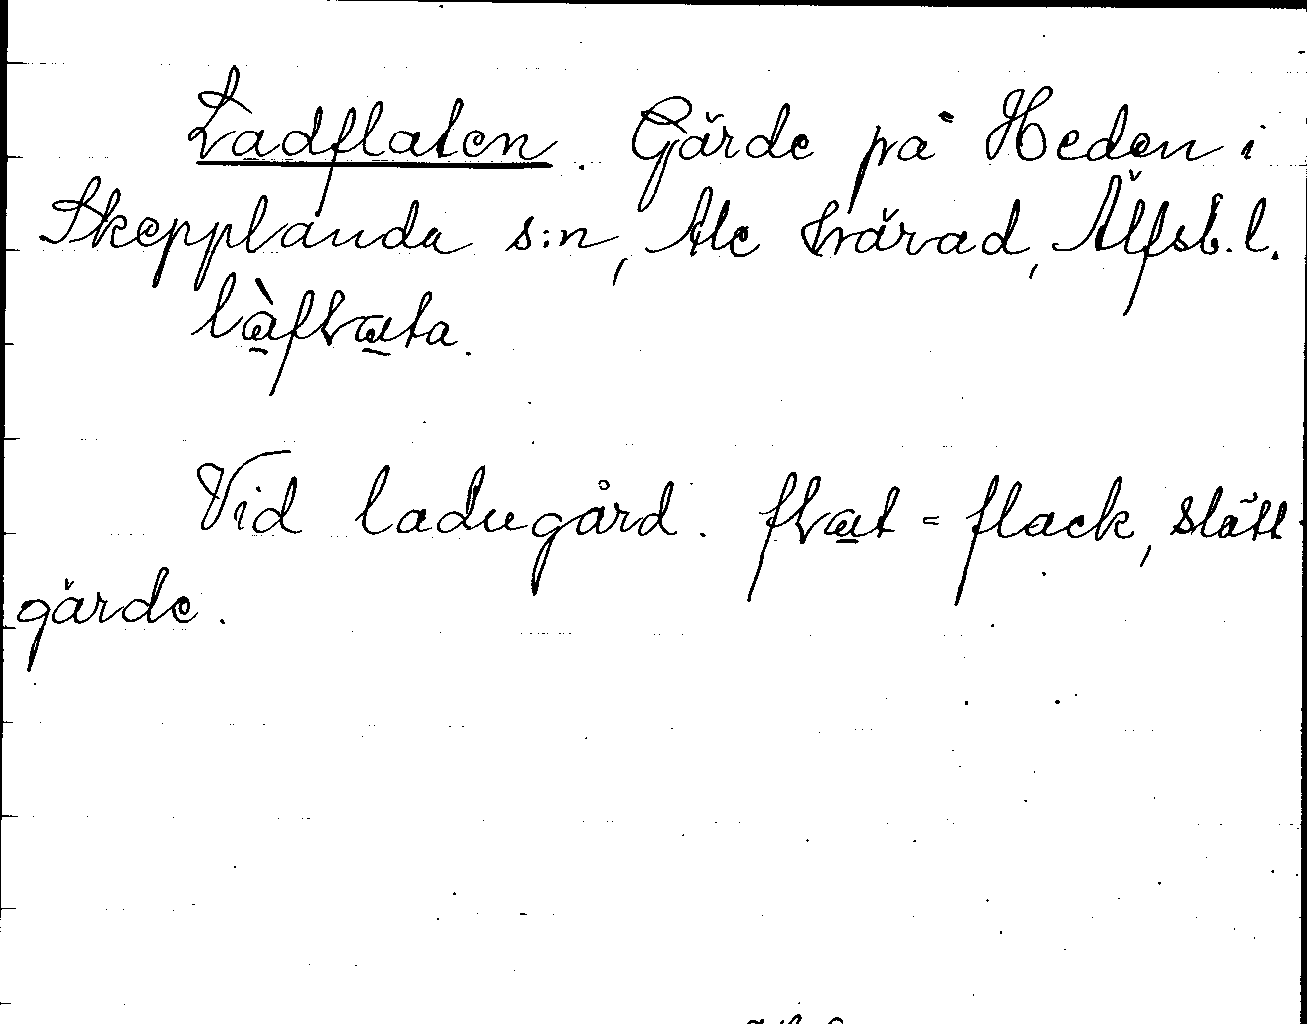 Ladflaten. Gärde på Heden i
Skepplanda s:n, Ale härad, Älfsb. l.
làflata.
Vid ladugård. flat = flack, slätt
gärde.